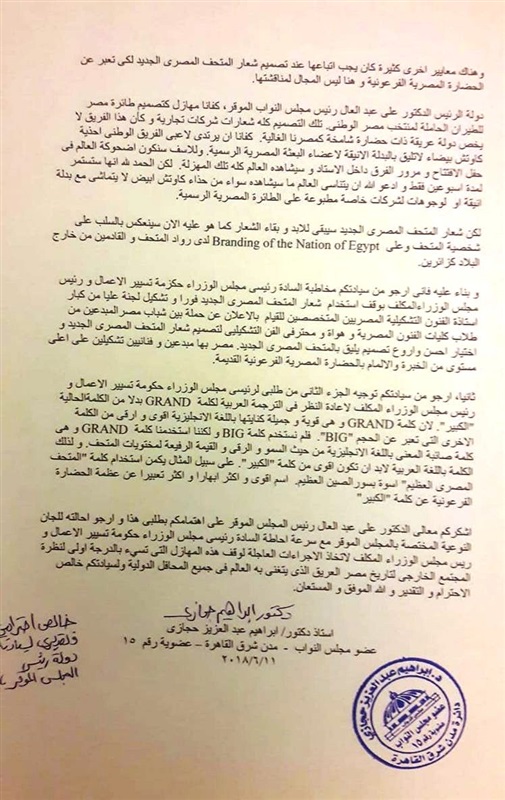 وهناك معايير اخرى كثيرة كان يجب اتباعها عند تصميم شعار المتحف المصرى الجديد لكى تعبر عن
الحضارة المصرية الفرعونية و هنا ليس المجال لمناقشتها.
دولة الرئيس الدكتور على عبد العال رئيس مجلس النواب الموقر، كفانا مهازل كتصميم طائرة مصر
للطيران الحاملة لمنتخب مصر الوطنى. تلك التصميم كله شعارات شركات تجارية و كأن هذا الفريق لا
يخص دولة عريقة ذات حضارة شامخة كمصرنا الغالية. كفانا ان يرتدى لاعبى الفريق الوطنى احذية
كاوتش بيضاء لاتليق بالبدلة الانيقة لاعضاء البعثة المصرية الرسمية. وللاسف سنكون اضحوكة العالم فى
حفل الافتتاح و مرور الفرق داخل الاستاد و سيشاهده العالم كله تلك المهزلة. لكن الحمد لله انها ستستمر
لمدة اسبوعين فقط و ادعو الله ان يتناسى العالم ما سيشاهده سواء من حذاء كاوتش ابيض لا يتماشى مع بدلة
انيقة او لوجوهات لشركات خاصة مطبوعة على الطائرة المصرية الرسمية.
لكن شعار المتحف المصرى الجديد سيبقى للابد و بقاء الشعار كما هو عليه الان سينعكس بالسلب على
شخصية المتحف وعلى Branding of the Nation of Egypt لدى رواد المتحف و القادمين من خارج
البلاد كزائرين.
و بناء عليه فانى ارجو من سيادتكم مخاطبة السادة رئيسى مجلس الوزراء حكزمة تسيير الاعمال و رئيس
مجلس الوزراءالمكلف بوقف استخدام شعار المتحف المصرى الجديد فورا و تشكيل لجنة عليا من كبار
استاذة الفنون التشكيلية المصريين المتخصصين للقيام بالاعلان عن حملة بين شباب مصرالمبدعين من
طلاب كليات الفنون المصرية و هواة و محترفى الفن التشكيلى لتصميم شعار المتحف المصرى الجديد و
اختيار احسن واروع تصميم يليق بالمتحف المصرى الجديد. مصر بها مبدعين و فنانيين تشكيلين على اعلى
مستوى من الخبرة والالمام بالحضارة المصرية الفرعونية القديمة.
ثانيا، ارجو من سيادتكم توجيه الجزء الثانى من طلبى لرئيسى مجلس الوزراء حكومة تسيير الاعمال و
رئيس مجلس الوزراء المكلف لاعادة النظر فى الترجمة العربية لكلمة GRAND بدلا من الكلمةالحالية
"الكبير". لان كلمة GRAND و هى قوية و جميلة كتابتها باللغة الانجليزية اقوى و ارقى من الكلمة
الاخرى التى تعبر عن الحجم "BIG". فلم نستخدم كلمة BIG و لكننا استخدمنا كلمة GRAND و هى
كلمة صائبة المعنى باللغة الانجليزية من حيث السمو و الرقى و القيمة الرفيعة لمحتويات المتحف. و لذلك
الكلمة باللغة العربية لابد ان تكون اقوى من كلمة "الكبير". على سبيل المثال يكمن استخدام كلمة "المتحف
المصرى العظيم" اسوة بسورالصين العظيم. اسم اقوى و اكثر ابهارا و اكثر تعبيرا عن عظمة الحضارة
الفرعونية عن كلمة "الكبير"
اشكركم معالى الدكتور على عبد العال رئيس المجلس الموقر على اهتمامكم بطلبى هذا و ارجو احالته للجان
النوعية المختصة بالمجلس الموقر مع سرعة احاطة السادة رئيسى مجلس الوزراء حكومة تسيير الاعمال و
ريس مجلس الوزراء المكلف لاتخاذ الاجراءات العاجلة لوقف هذه المهازل التى تسيء بالدرجة اولى لنظرة
المجتمع الخارجى لتاريخ مصر العريق الذى يتغنى به العالم فى جميع المحافل الدولية ولسيادتكم خالص
الاحترام و التقدير و الله الموفق و المستعان.
دكتور ابراهيم حجازى
استاذ دكتور/ ابراهيم عبد العزيز حجازى
عضو مجلس النواب - مدن شرق القاهرة - عضوية رقم ١٥
٢٠١٨/٦/١١
خالص احترامى
وتقديرى لسيادة
دولة رئيس
المجلس الموقر
د. ابراهيم عبد العزيز حجازى
عضو مجلس النواب
عضوية رقم ١٥
دائرة مدن شرق القاهرة